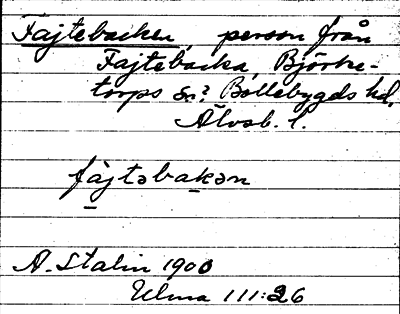 Fajtebacken, person från
Fajtebacka, Björke-
torps sn? Bollebygds hd,
Älvsb. l.
fàjtəbakən
A. Stalin 1900
Ulma 111:26